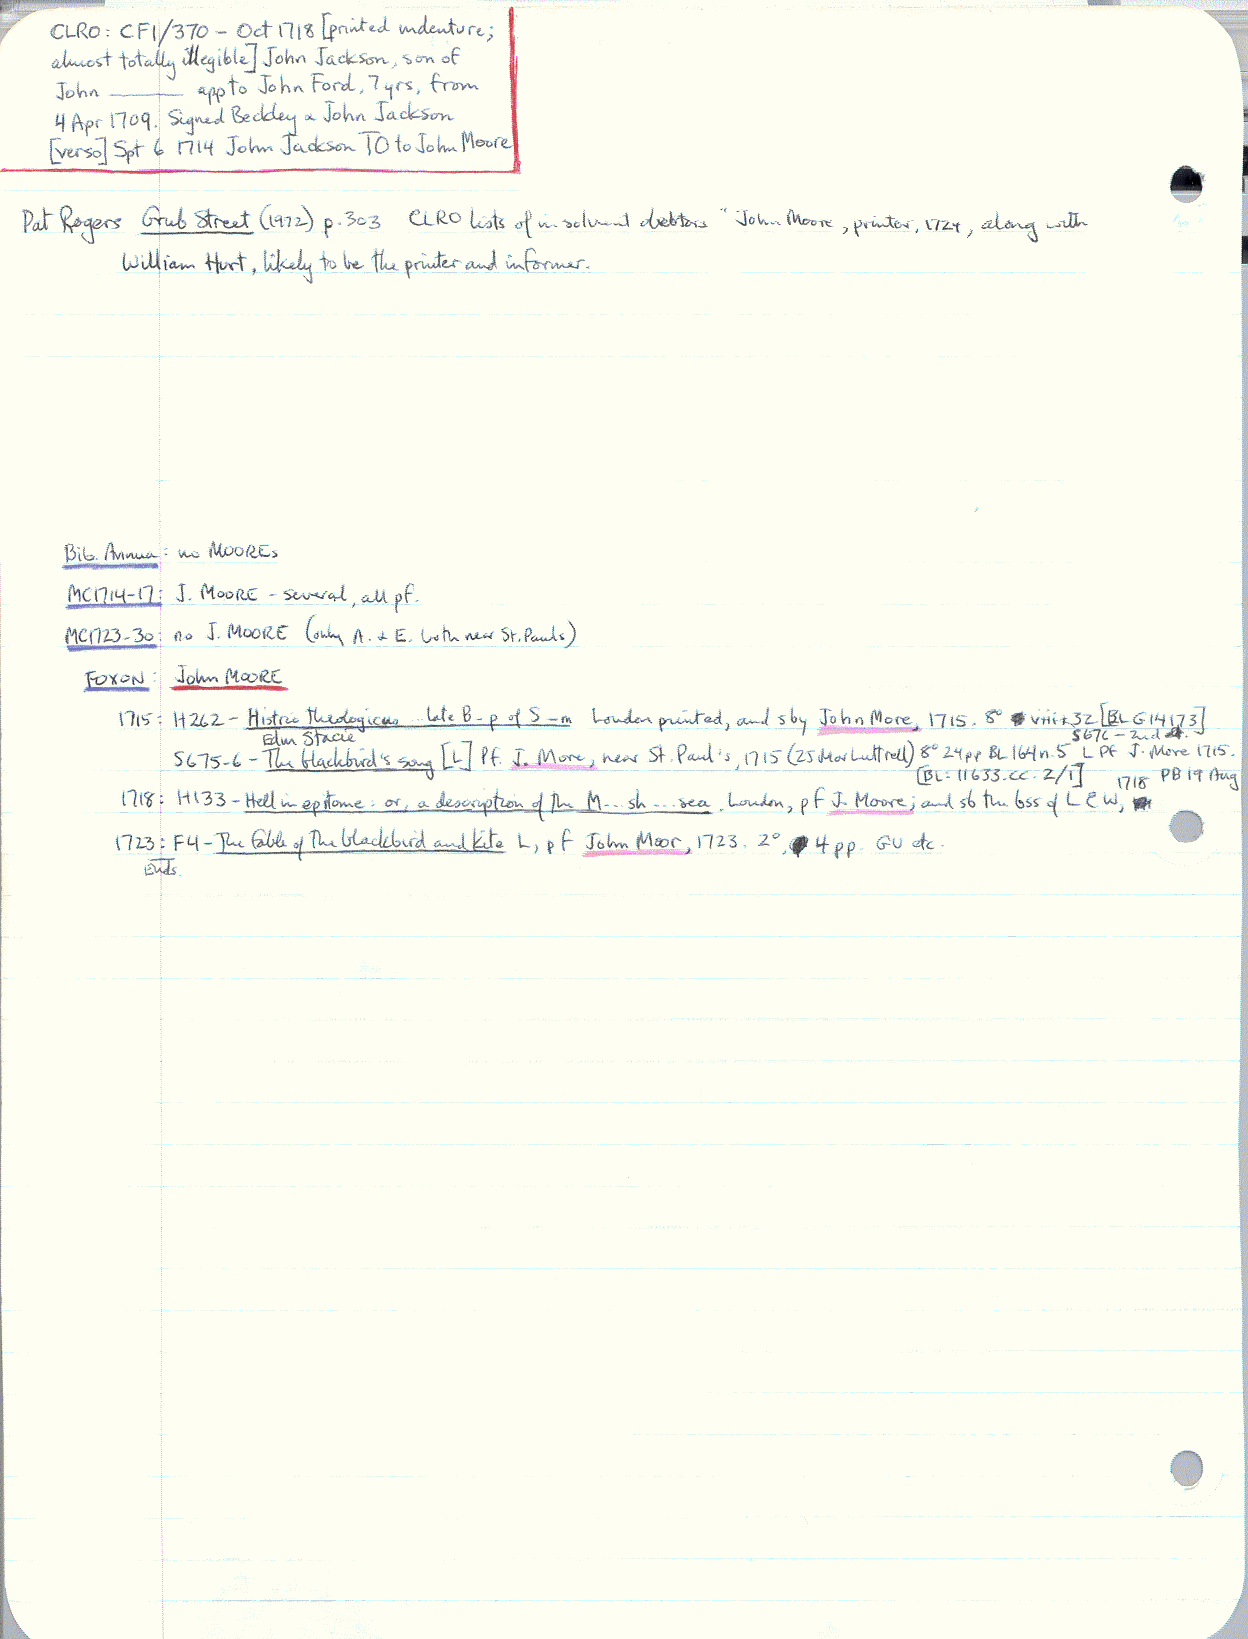 CLRO: CF1/370 - Oct 1718 [printed indenture;
almost totally illegible] John Jackson, son of
John ______ app to John Ford, 7yrs, from
4 Apr 1709. Signed Beckley & John Jackson
[verso] Spt 6 1714 John Jackson TO to John Moore
Pat Rogers Grub Street (1972) p.303 CLRO lists of insolvent debtors " John Moore, printer, 1724, along with
William Hurt, likely to be the printer and informer.
Bib. Annua: no MOOREs
MC1714-17: J. MOORE - several, all pf.
MC1723-30: no J. MOORE (only A. & E. both near St. Pauls)
FOXON: John MOORE
1715: H262 - Histrio theologicus ... late B-p of S-m London printed, and s by John More, 1715. 8° viii+32 [BL G14173]
Edm Stacie
S676 - 2nd
S675-6 - The blackbird's song [L] Pf. J. More, near St. Paul's, 1715 (25 Mar Luttrell) 8° 24pp BL 164n.5 L Pf J. More 1715.
[BL: 11633.cc.2/1] 1718 PB 19 Aug
1718: H133 - Hell in epitome: or, a description of the M...sh...sea. London, pf J. Moore; and sb the bss of L & W,
1723: F4 - The fable of the blackbird and kite L, pf John Moor, 1723. 2°, 4 pp. GU etc.
Ends.